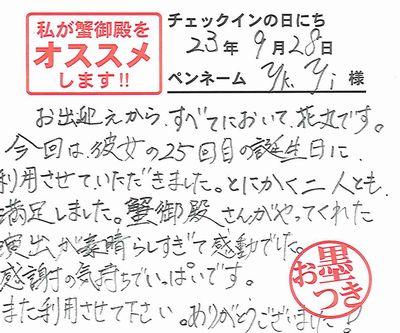 私が蟹御殿を
オススメ
します!!
チェックインの日にち
23年9月28日
ペンネーム Yk, Yi 様
お出迎えから、すべてにおいて、花丸です。
今回は、彼女の25回目の誕生日に、
利用させていただきました。とにかく二人とも、
満足しました。蟹御殿さんがやってくれた
演出が素晴らしすぎて感動でした。
感謝の気持ちでいっぱいです。
また利用させて下さい。ありがとうございました!!
お墨つき